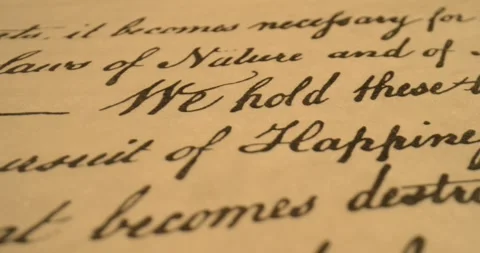 it becomes necessary for
laws of Nature and of
We hold these
ursuit of Happine
nt becomes destr